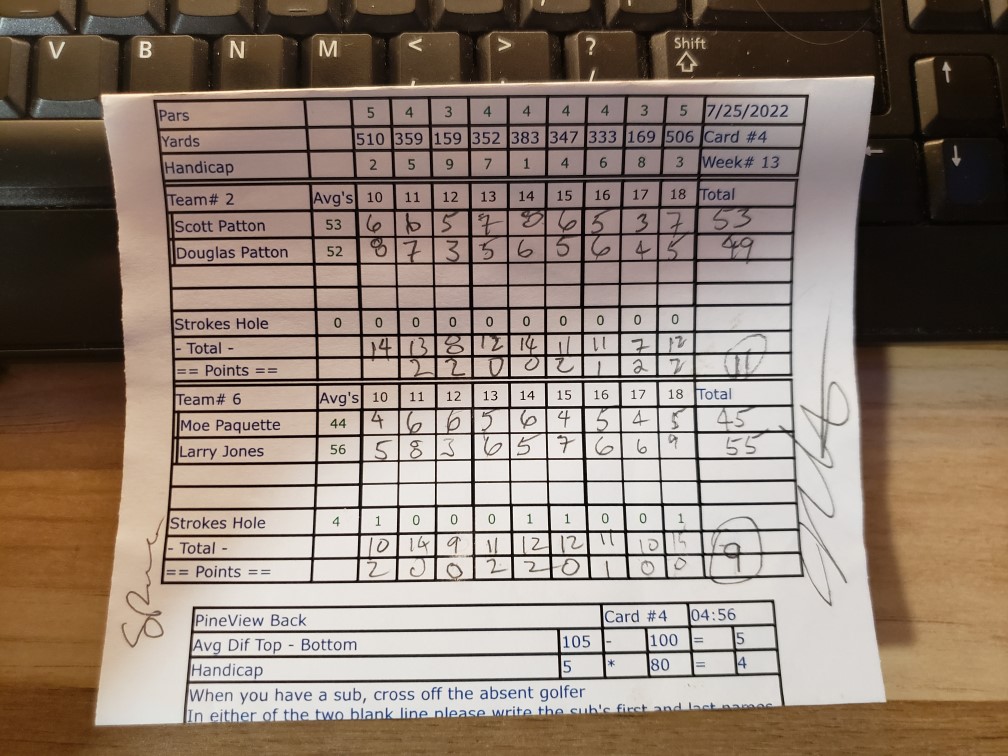 V B N M < > ? Shift
, . /
Pars 5 4 3 4 4 4 4 3 5 7/25/2022
Yards 510 359 159 352 383 347 333 169 506 Card #4
Handicap 2 5 9 7 1 4 6 8 3 Week# 13
Team# 2 Avg's 10 11 12 13 14 15 16 17 18 Total
Scott Patton 53 6 6 5 7 8 6 5 3 7 53
Douglas Patton 52 8 7 3 5 6 5 6 4 5 49
Strokes Hole 0 0 0 0 0 0 0 0 0 0
- Total - 14 13 8 12 14 11 11 7 12
== Points == 2 2 0 0 2 1 2 2 11
Team# 6 Avg's 10 11 12 13 14 15 16 17 18 Total
Moe Paquette 44 4 6 6 5 6 4 5 4 5 45
Larry Jones 56 5 8 3 6 5 7 6 6 9 55
Strokes Hole 4 1 0 0 0 1 1 0 0 1
- Total - 10 14 9 11 12 12 11 10 15 9
== Points == 2 0 0 2 2 0 1 0 0
PineView Back Card #4 04:56
Avg Dif Top - Bottom 105 - 100 = 5
Handicap 5 * 80 = 4
When you have a sub, cross off the absent golfer
In either of the two blank line please write the sub's first and last names